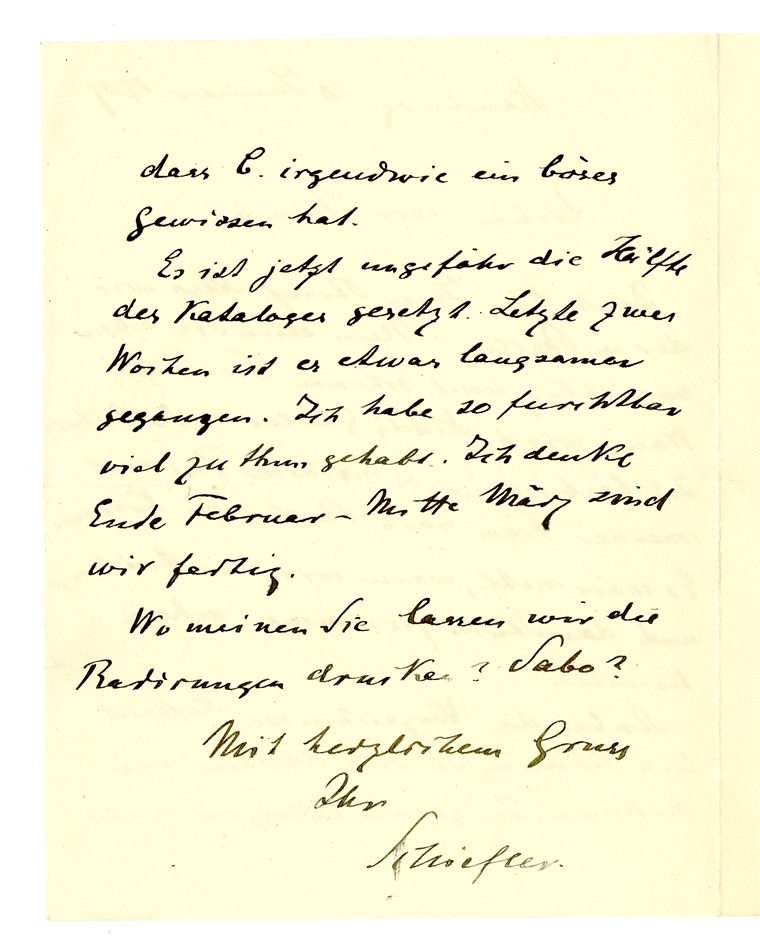 dass C. irgendwie ein böses
Gewissen hat.
Es ist jetzt ungefähr die Hälfte
des Kataloges gesetzt. Letzte zwei
Wochen ist es etwas langsamer
gegangen. Ich habe so furchtbar
viel zu thun gehabt. Ich denke
Ende Februar – Mitte März sind
wir fertig.
Wo meinen Sie lassen wir die
Radirungen drucken? Sabo?
Mit herzlichem Gruss
Ihr
Schiefler.